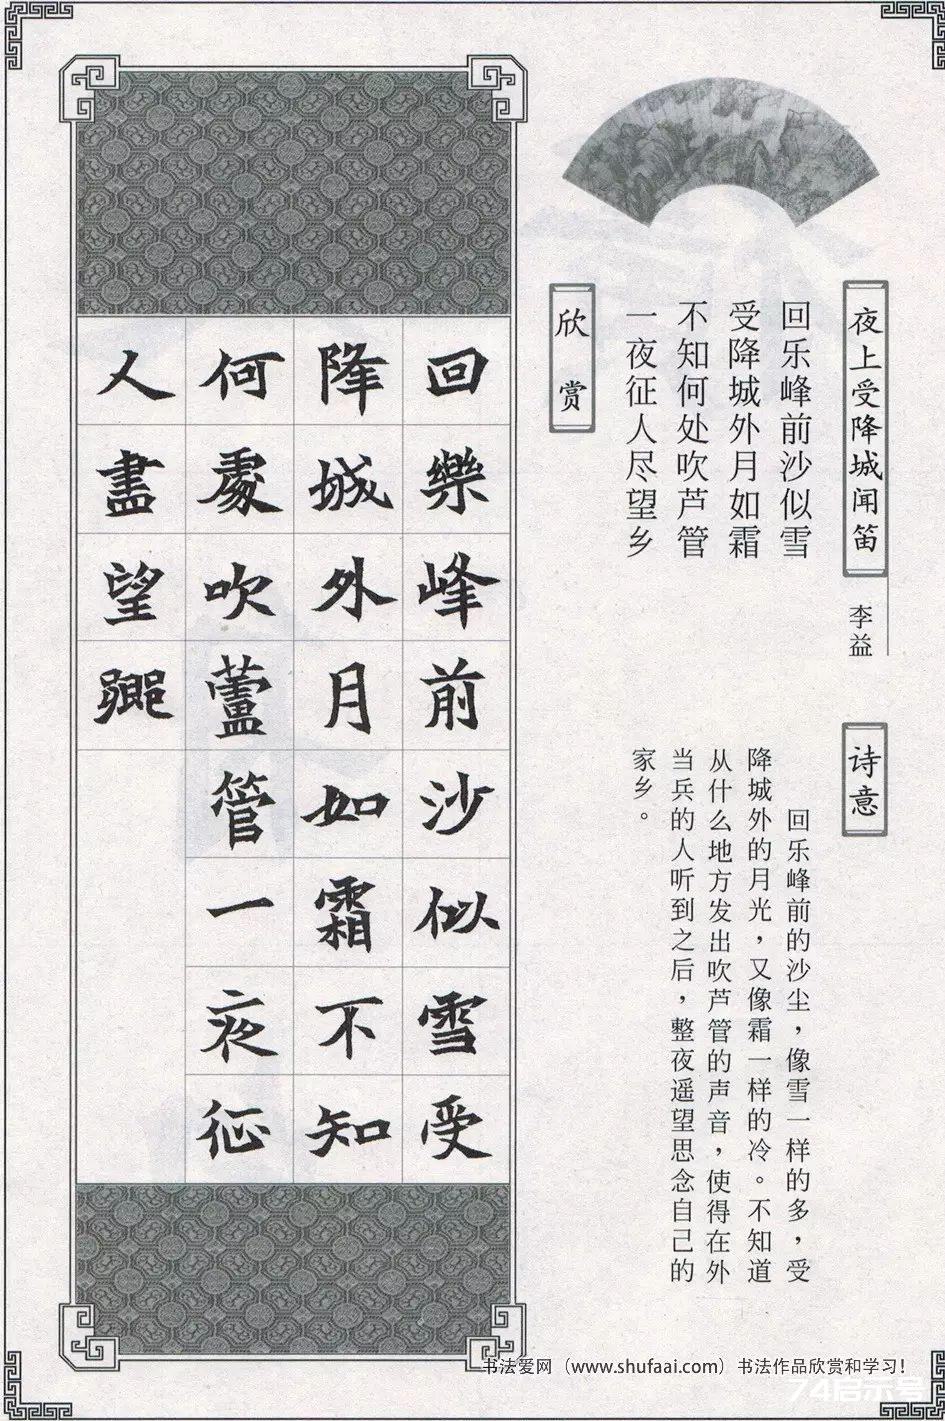 夜上受降城闻笛
李益
回乐峰前沙似雪
受降城外月如霜
不知何处吹芦管
一夜征人尽望乡
诗意
回乐峰前的沙尘，像雪一样的多，受
降城外的月光，又像霜一样的冷。不知道
从什么地方发出吹芦管的声音，使得在外
当兵的人听到之后，整夜遥望思念自己的
家乡。
欣赏
回樂峰前沙似雪受
降城外月如霜不知
何處吹蘆管一夜征
人盡望鄉
书法爱网（www.shufaai.com）书法作品欣赏和学习！
74启示号